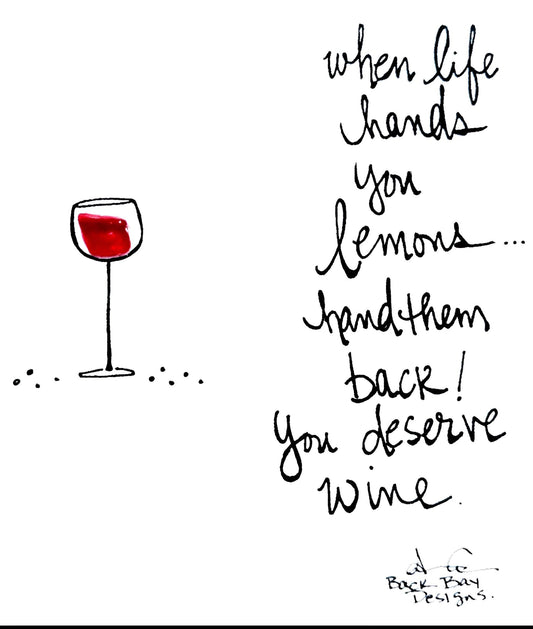 when life
hands
you
lemons...
hand them
back!
You deserve
wine.
Back Bay
Designs.